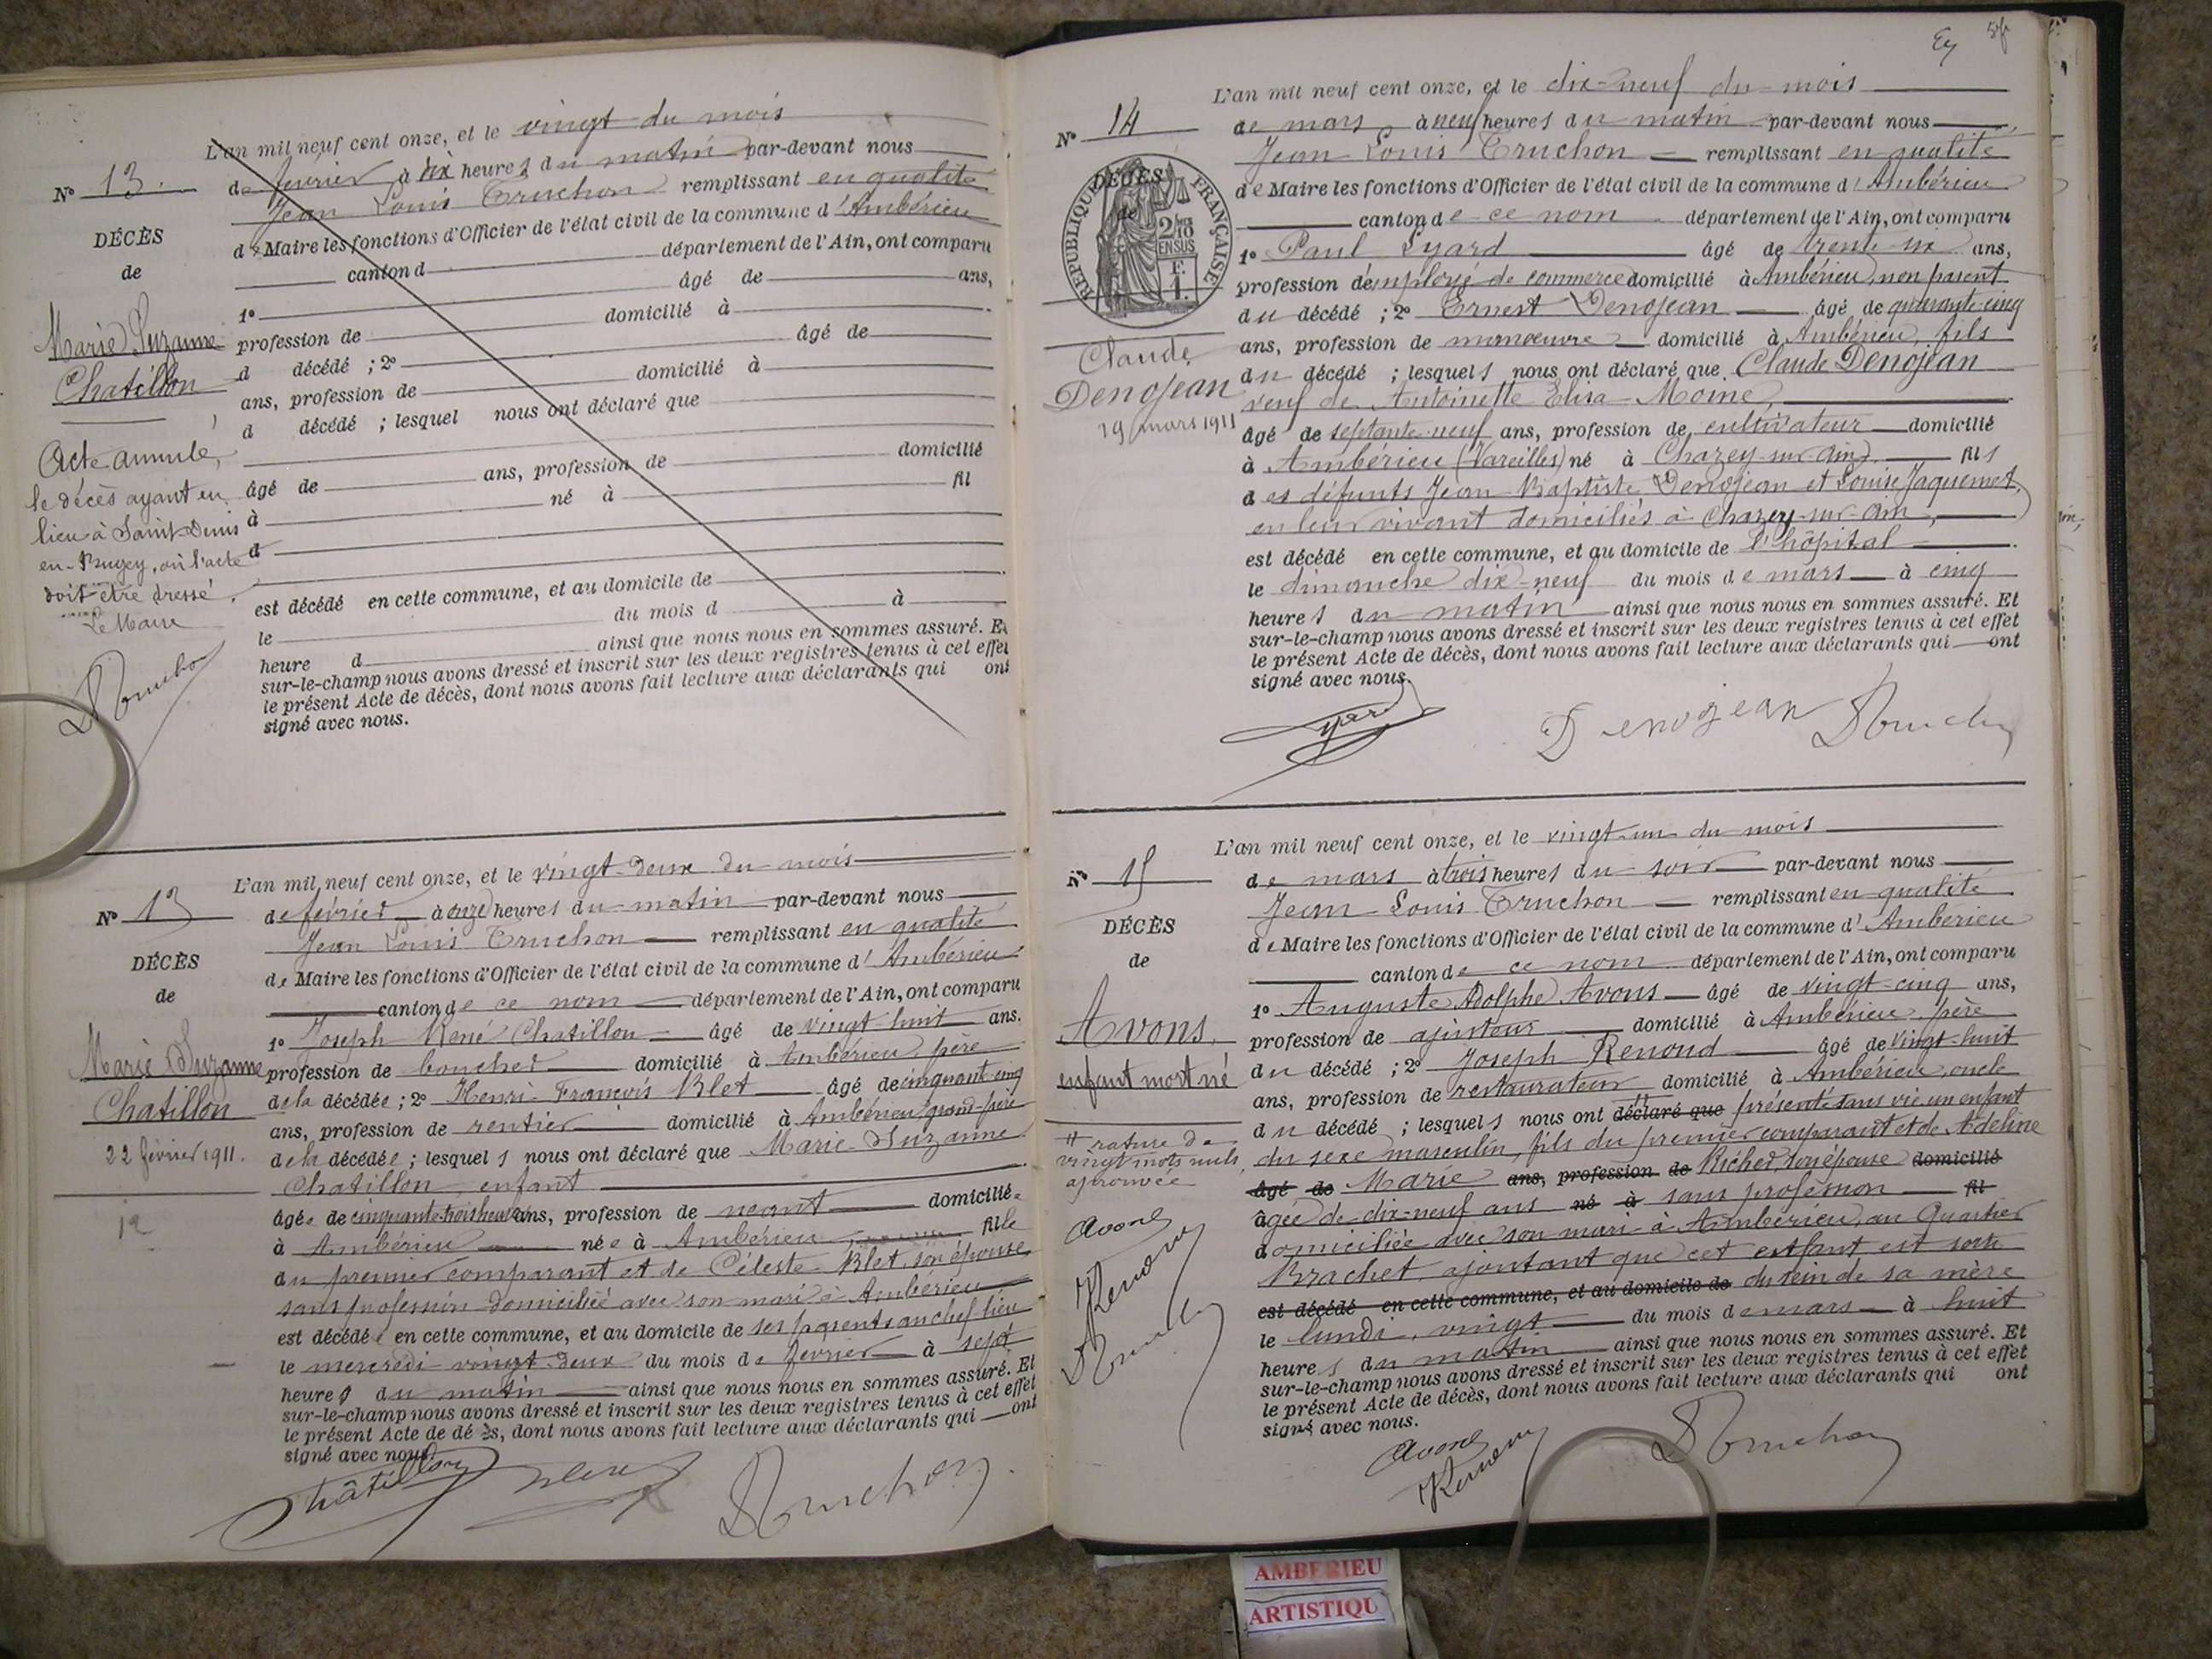 N° 13.
DÉCÈS
de
Marie Suzanne
Chatillon
Acte annulé,
le décès ayant eu
lieu à Saint-Denis
en-Bugey, où l'acte
doit être dressé.
Le Maire
L'an mil neuf cent onze, et le vingt du mois
de février à dix heures du matin par-devant nous
Jean Louis Truchon remplissant en qualité
de Maire les fonctions d'Officier de l'état civil de la commune d'Ambérieu
canton d département de l'Ain, ont comparu
1° âgé de ans,
profession de domicilié à
d décédé ; 2° âgé de
ans, profession de domicilié à
d décédé ; lesquel nous ont déclaré que
âgé de ans, profession de domicilié
à né à fil
d
est décédé en cette commune, et au domicile de
le du mois d à
heure d ainsi que nous nous en sommes assuré. Et
sur-le-champ nous avons dressé et inscrit sur les deux registres tenus à cet effet
le présent Acte de décès, dont nous avons fait lecture aux déclarants qui ont
signé avec nous.
N° 13
DÉCÈS
de
Marie Suzanne
Chatillon
22 février 1911.
12
L'an mil neuf cent onze, et le vingt-deux du mois
de février à onze heures du matin par-devant nous
Jean Louis Truchon remplissant en qualité
de Maire les fonctions d'Officier de l'état civil de la commune d'Ambérieu
canton de ce nom département de l'Ain, ont comparu
1° Joseph René Chatillon âgé de vingt-huit ans.
profession de boucher domicilié à Ambérieu, père
de la décédée ; 2° Henri François Blet âgé de cinquant cinq
ans, profession de rentier domicilié à Ambérieu grand-père
de la décédée ; lesquels nous ont déclaré que Marie-Suzanne
Chatillon, enfant
âgée de cinquante-trois heures ans, profession de néant domiciliée
à Ambérieu née à Ambérieu fille
du premier comparant et de Céleste Blet, son épouse
sans profession domiciliée avec son mari à Ambérieu
est décédée en cette commune, et au domicile de ses parents au chef-lieu
le mercredi vingt-deux du mois de février à sept
heures du matin ainsi que nous nous en sommes assuré. Et
sur-le-champ nous avons dressé et inscrit sur les deux registres tenus à cet effet
le présent Acte de décès, dont nous avons fait lecture aux déclarants qui ont
signé avec nous.
Châtillon Blet Truchon
N° 14
DÉCÈS
de
RÉPUBLIQUE FRANÇAISE
2/10 EN SUS
F. 1.
Claude
Denojean
19 mars 1911
L'an mil neuf cent onze, et le dix-neuf du mois
de mars à neuf heures du matin par-devant nous
Jean Louis Truchon remplissant en qualité
de Maire les fonctions d'Officier de l'état civil de la commune d'Ambérieu
canton de ce nom département de l'Ain, ont comparu
1° Paul Eyard âgé de trente-six ans,
profession d'employé de commerce domicilié à Ambérieu, non parent
du décédé ; 2° Ernest Denojean âgé de quarante-cinq
ans, profession de manoeuvre domicilié à Ambérieu, fils
du décédé ; lesquels nous ont déclaré que Claude Denojean
veuf de Antoinette Elisa Moine,
âgé de septante-neuf ans, profession de cultivateur domicilié
à Ambérieu (Vareilles) né à Chazey-sur-Ain, fils
des défunts Jean Baptiste Denojean et Louise Jaquemet,
en leur vivant domiciliés à Chazey-sur-Ain,
est décédé en cette commune, et au domicile de l'hôpital
le dimanche dix-neuf du mois de mars à cinq
heures du matin ainsi que nous nous en sommes assuré. Et
sur-le-champ nous avons dressé et inscrit sur les deux registres tenus à cet effet
le présent Acte de décès, dont nous avons fait lecture aux déclarants qui ont
signé avec nous.
Denojean Truchon
N° 15
DÉCÈS
de
Avons,
enfant mort né
rature de
vingt mots nuls,
aprouvée
Avons
L'an mil neuf cent onze, et le vingt-un du mois
de mars à trois heures du soir par-devant nous
Jean Louis Truchon remplissant en qualité
de Maire les fonctions d'Officier de l'état civil de la commune d'Ambérieu
canton de ce nom département de l'Ain, ont comparu
1° Auguste Adolphe Avons âgé de vingt-cinq ans,
profession de ajusteur domicilié à Ambérieu, père
du décédé ; 2° Joseph Renoud âgé de vingt-huit
ans, profession de restaurateur domicilié à Ambérieu, oncle
du décédé ; lesquels nous ont déclaré que présenté sans vie un enfant
du sexe masculin, fils du premier comparant et de Adeline
âgé de Marie ans, profession de Richer, son épouse domicilié
âgée de dix-neuf ans né à sans profession fil
domiciliée avec son mari à Ambérieu, au Quartier
Brachet, ajoutant que cet enfant est sorti
est décédé en cette commune, et au domicile de du sein de sa mère
le lundi, vingt du mois de mars à huit
heures du matin ainsi que nous nous en sommes assuré. Et
sur-le-champ nous avons dressé et inscrit sur les deux registres tenus à cet effet
le présent Acte de décès, dont nous avons fait lecture aux déclarants qui ont
signé avec nous.
Avons Truchon
AMBERIEU
ARTISTIQU